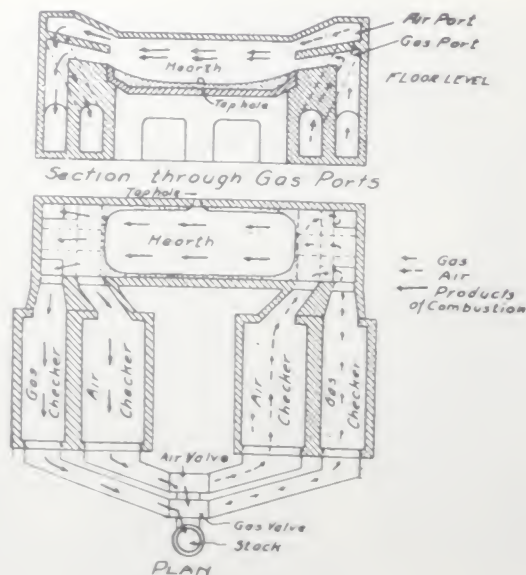 Air Port
Gas Port
Hearth
FLOOR LEVEL
Taphole
Section through Gas Ports
Taphole
Hearth
Gas
Air
Products
of Combustion
Gas
Checker
Air
Checker
Air
Checker
Gas
Checker
Air Valve
Gas Valve
Stack
PLAN